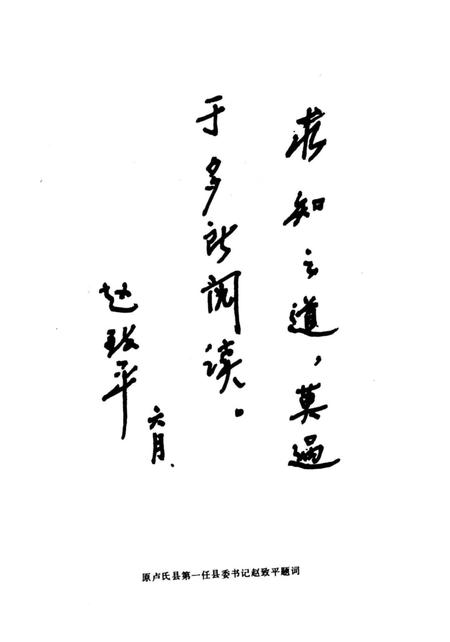 求知之道，莫过
于多所阅读。
赵致平
六月.
原卢氏县第一任县委书记赵致平题词